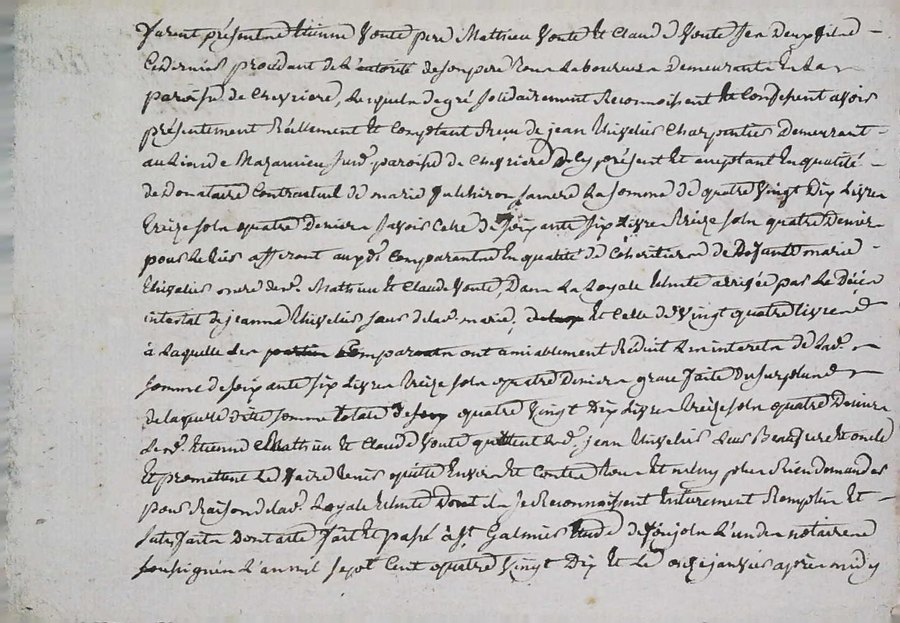 furent présents Etienne Vonte pere Mathieu Vonte et Claude Vonte Ses deux fils
Ce dernier procedant de l'autorité de son pere tous Laboureurs Demeurants En La
paroisse de Chevriere, Lesquels de gré solidairement Reconnoissent et Confessent avoir
présentement Réellement Et Comptant Reçu de jean Thivelier Charpentier Demeurant
au Lieu de Mazancieu susd. paroisse de Chevriere Icy présent Et acceptant En qualité
de Donataire Contractuel de marie fulchiron sa mere La somme de quatre vingt Dix Livres
treize sols quatre Deniers savoir Celle de soixante six Livres treize sols quatre Deniers
pour Le tiers afferant auxds. Comparants En qualité de Cohéritiers de Defunte marie
thivelier mere desd. Mathieu Et Claude Vonte, Dans La Loyale Echute arrivée par Le Décès
intestat de jeanne thivelier sœur de lad. marie, Et Celle de vingt quatre livres
à Laquelle Les parties Comparants ont amiablement Réduit Les interets de lad.
somme de soixante six Livres treize sols quatre Deniers grace faite du surplus
de laquelle dite somme totale de quatre vingt Dix Livres treize sols quatre Deniers
Lesd. Etienne Mathieu Et Claude Vonte quittent led. jean thivelier Leur Beaufrere Et oncle
Et promettent Le faire tenir quitte Envers Et Contre tous Et n'en plus Rien demander
pour Raison de lad. Loyale Echute Dont ils se Reconnoissent Entierement Remplis Et
satisfaits Dont acte fait Et passé à st Galmier Etude de l'un des notaires
soussignés L'an mil sept Cent quatre vingt Dix Et Le onze janvier après midy